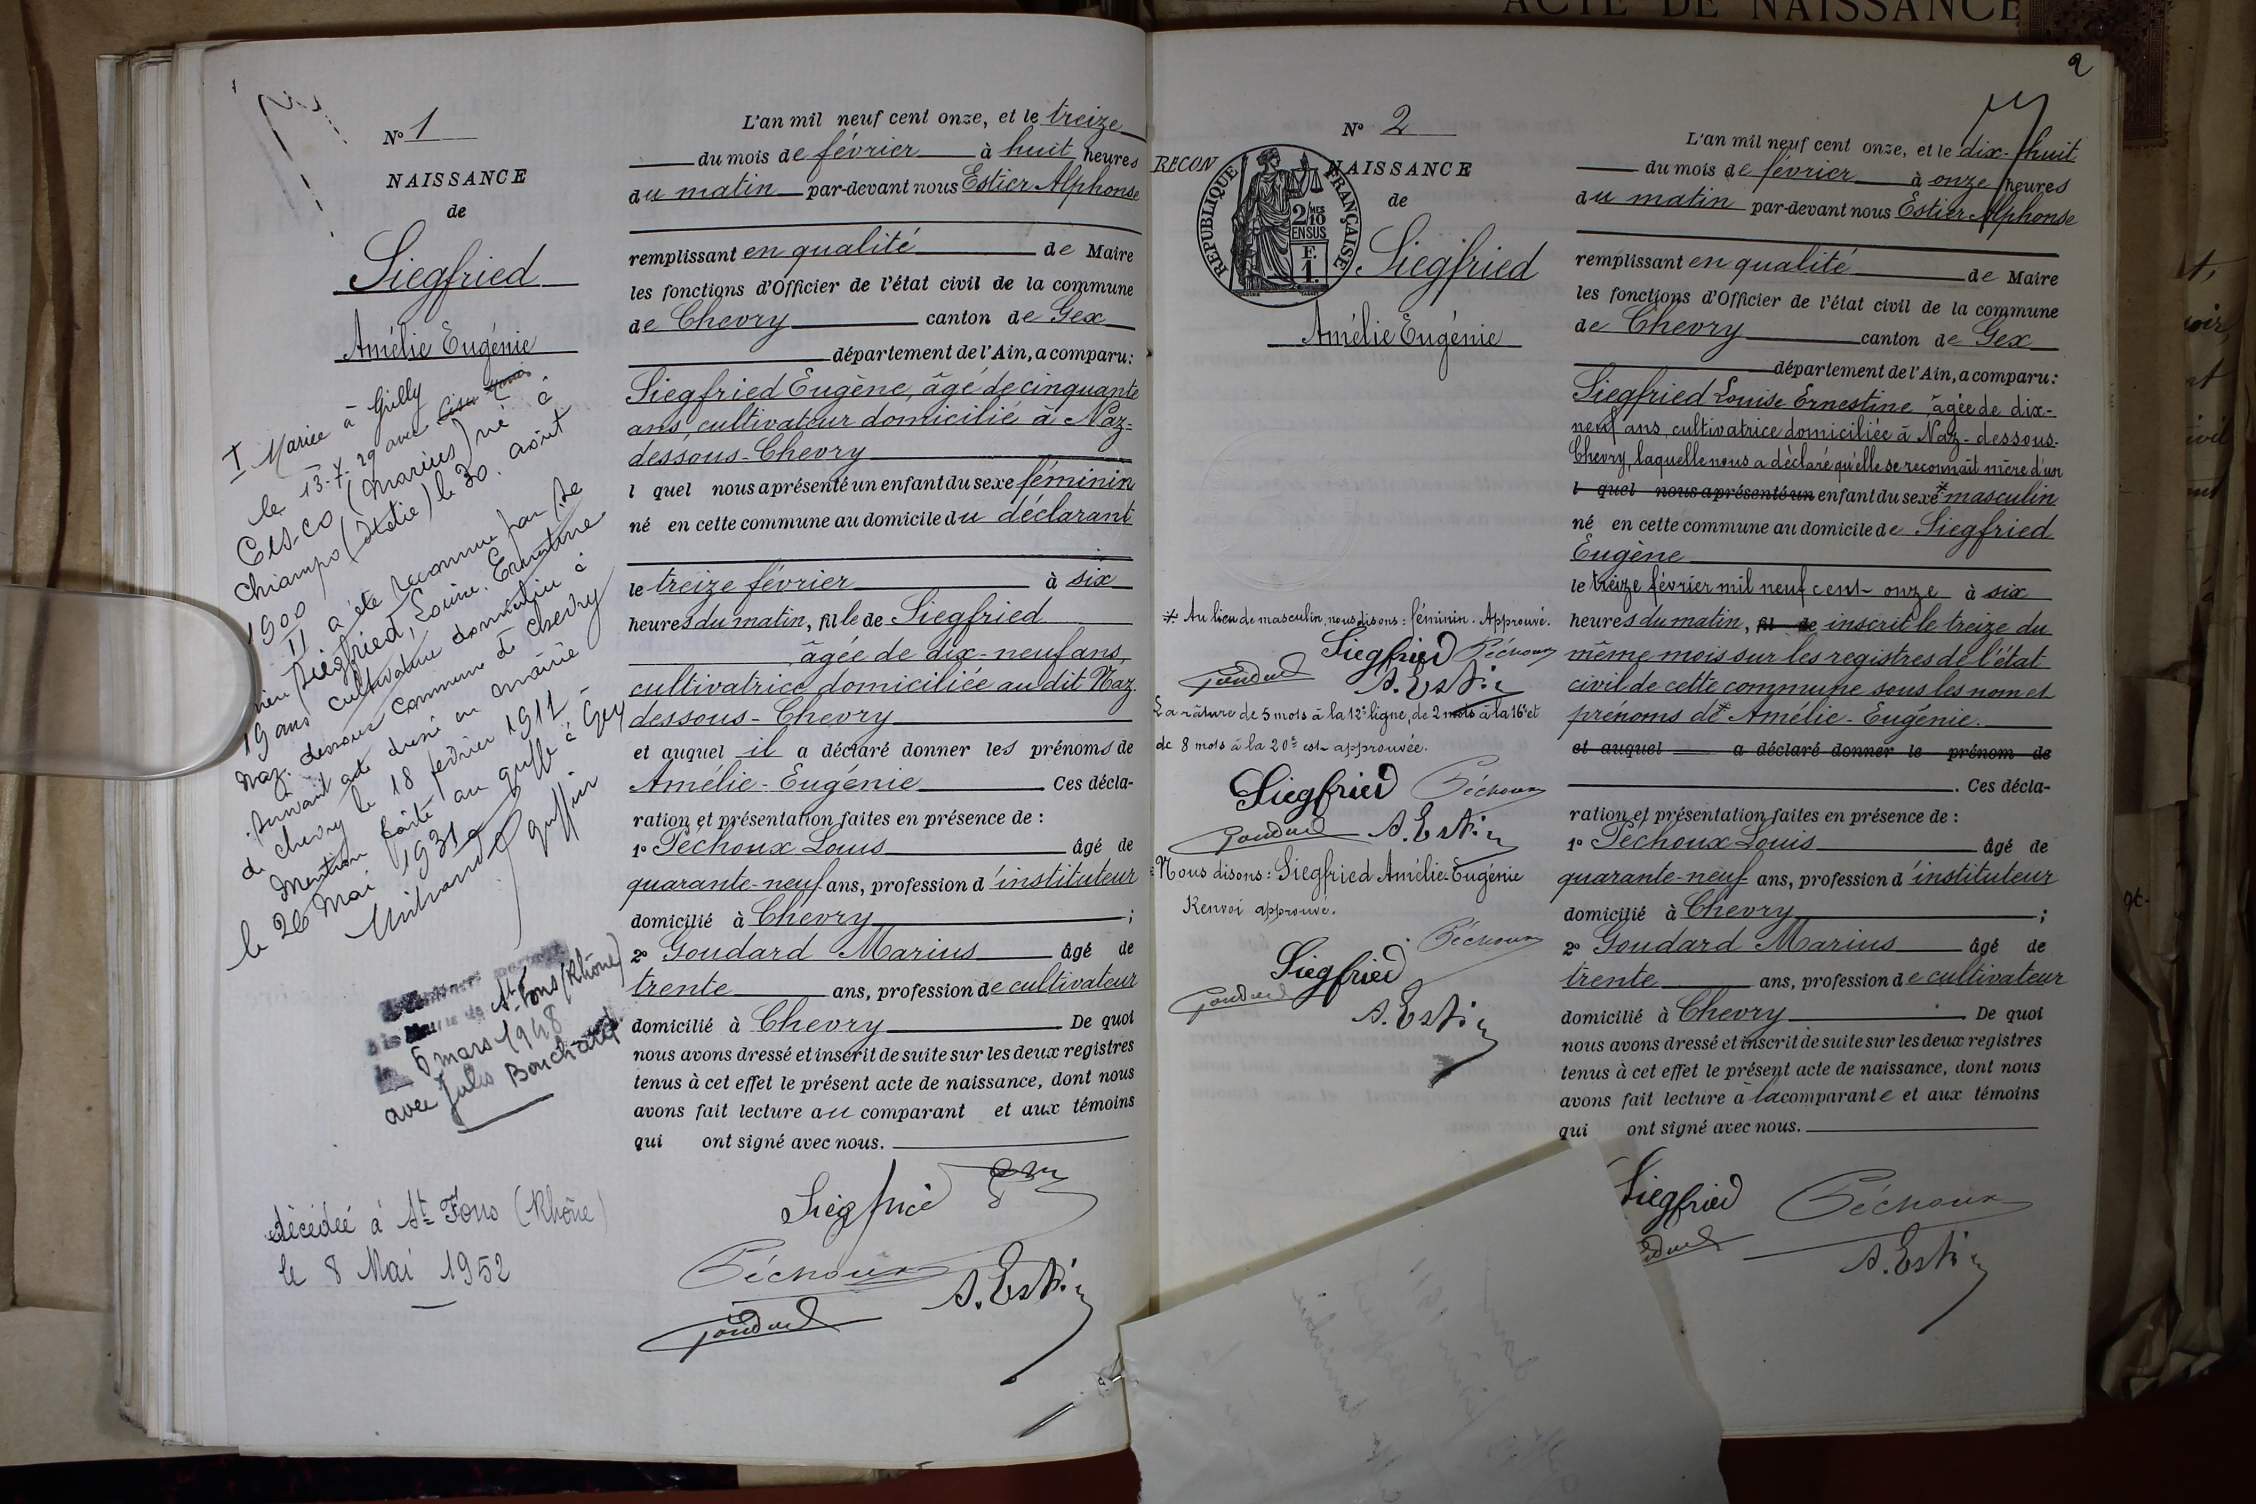 ACTE DE NAISSANCE
No 1
NAISSANCE
de
Siegfried
Amélie Eugénie
I Mariée à Grilly
le 13-7-29 avec
Cisco (Marius) né à
Chiampo (Italie) le 30 août
1900
II a été reconnue par
Siegfried, Louise Ernestine
19 ans cultivatrice domiciliée à
Naz-dessous commune de Chevry
suivant acte dressé en mairie
de Chevry le 18 février 1911
Mention faite au greffe à Gex
le 26 Mai 1931
greffier
St Fons (Rhône)
6 mars 1948
avec Jules
décédée à St Fons (Rhône)
le 8 Mai 1952
L'an mil neuf cent onze, et le treize
du mois de février à huit heures
du matin par-devant nous Estier Alphonse
remplissant en qualité de Maire
les fonctions d'Officier de l'état civil de la commune
de Chevry canton de Gex
département de l'Ain, a comparu:
Siegfried Eugène, âgé de cinquante
ans, cultivateur domicilié à Naz-
dessous-Chevry
l quel nous a présenté un enfant du sexe féminin
né en cette commune au domicile du déclarant
le treize février à six
heures du matin, fille de Siegfried
âgée de dix-neuf ans,
cultivatrice domiciliée au dit Naz-
dessous-Chevry
et auquel il a déclaré donner les prénoms de
Amélie-Eugénie Ces décla-
ration et présentation faites en présence de :
1o Péchoux Louis âgé de
quarante-neuf ans, profession d'instituteur
domicilié à Chevry ;
2o Goudard Marius âgé de
trente ans, profession de cultivateur
domicilié à Chevry De quoi
nous avons dressé et inscrit de suite sur les deux registres
tenus à cet effet le présent acte de naissance, dont nous
avons fait lecture au comparant et aux témoins
qui ont signé avec nous.
Siegfried
Péchoux
A. Estier
Goudard
2
No 2
RECON NAISSANCE
de
REPUBLIQUE FRANÇAISE
2/10 MES
EN SUS
F.
1.
Siegfried
Amélie Eugénie
* Au lieu de masculin, nous disons : féminin. Approuvé.
Siegfried Péchoux
Goudard A. Estier
La râture de 5 mots à la 12e ligne, de 2 mots à la 16e et
de 8 mots à la 20e est approuvée.
Siegfried Péchoux
Goudard A. Estier
Nous disons : Siegfried Amélie-Eugénie
Renvoi approuvé.
Péchoux
Siegfried
Goudard
A. Estier
L'an mil neuf cent onze, et le dix-huit
du mois de février à onze heures
du matin par-devant nous Estier Alphonse
remplissant en qualité de Maire
les fonctions d'Officier de l'état civil de la commune
de Chevry canton de Gex
département de l'Ain, a comparu:
Siegfried Louise Ernestine âgée de dix-
neuf ans, cultivatrice domiciliée à Naz-dessous-
Chevry, laquelle nous a déclaré qu'elle se reconnaît mère d'un
l quel nous a présenté un enfant du sexe * masculin
né en cette commune au domicile de Siegfried
Eugène
le treize février mil neuf cent onze à six
heures du matin, fil de inscrit le treize du
même mois sur les registres de l'état
civil de cette commune sous les nom et
prénoms de * Amélie-Eugénie.
et auquel a déclaré donner le prénom de
. Ces décla-
ration et présentation faites en présence de :
1o Péchoux Louis âgé de
quarante-neuf ans, profession d'instituteur
domicilié à Chevry ;
2o Goudard Marius âgé de
trente ans, profession de cultivateur
domicilié à Chevry De quoi
nous avons dressé et inscrit de suite sur les deux registres
tenus à cet effet le présent acte de naissance, dont nous
avons fait lecture à la comparante et aux témoins
qui ont signé avec nous.
Siegfried Péchoux
A. Estier